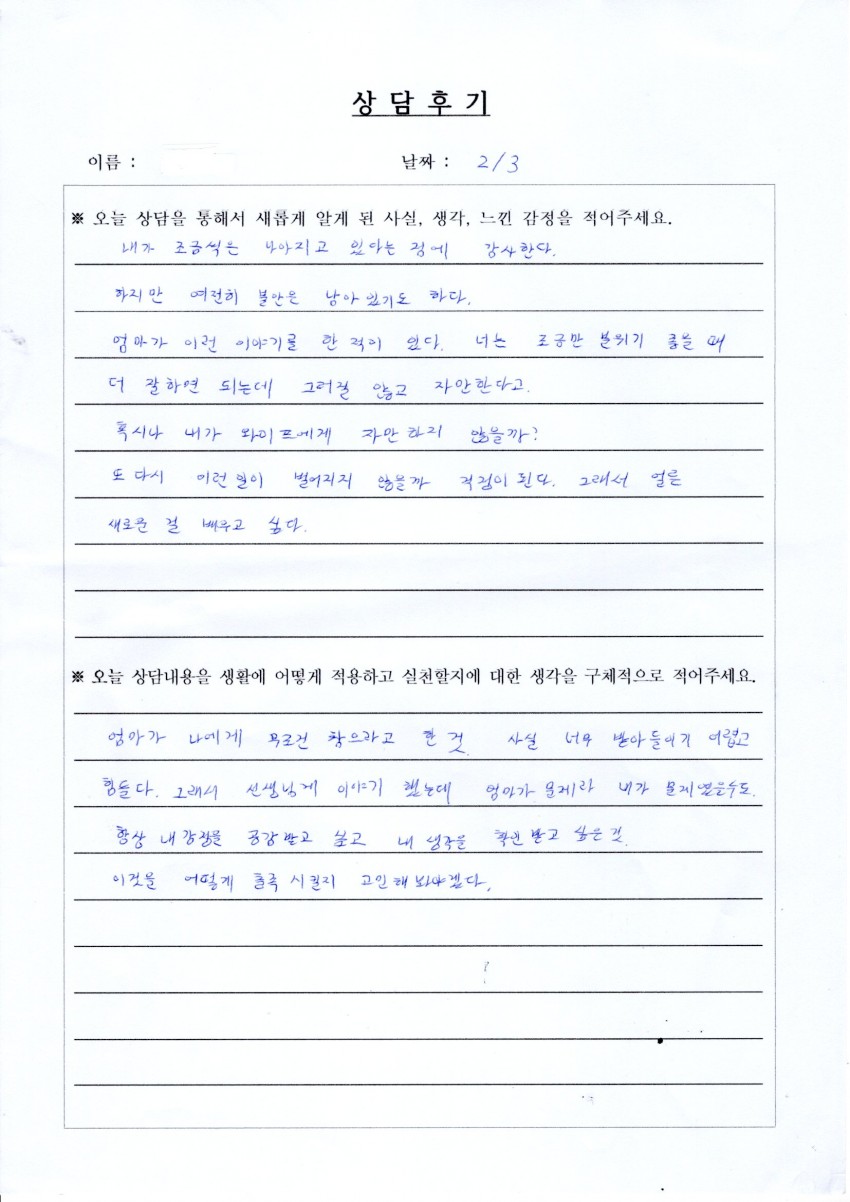 상 담 후 기
이름 :
날짜 : 2/3
※ 오늘 상담을 통해서 새롭게 알게 된 사실, 생각, 느낀 감정을 적어주세요.
내가 조금씩은 나아지고 있다는 점에 감사한다.
하지만 여전히 불안은 남아 있기도 하다.
엄마가 이런 이야기를 한 적이 있다. 너는 조금만 분위기 좋을 때
더 잘하면 되는데 그러질 않고 자만한다고.
혹시나 내가 와이프에게 자만 하지 않을까?
또 다시 이런 일이 벌어지지 않을까 걱정이 된다. 그래서 얼른
새로운 걸 배우고 싶다.
※ 오늘 상담내용을 생활에 어떻게 적용하고 실천할지에 대한 생각을 구체적으로 적어주세요.
엄마가 나에게 무조건 참으라고 한 것. 사실 너무 받아들이기 어렵고
힘들다. 그래서 선생님께 이야기 했는데 엄마가 문제라 내가 문제였을수도.
항상 내 감정을 공감 받고 싶고 내 생각을 확인 받고 싶은 것.
이것을 어떻게 충족 시킬지 고민해 봐야겠다.